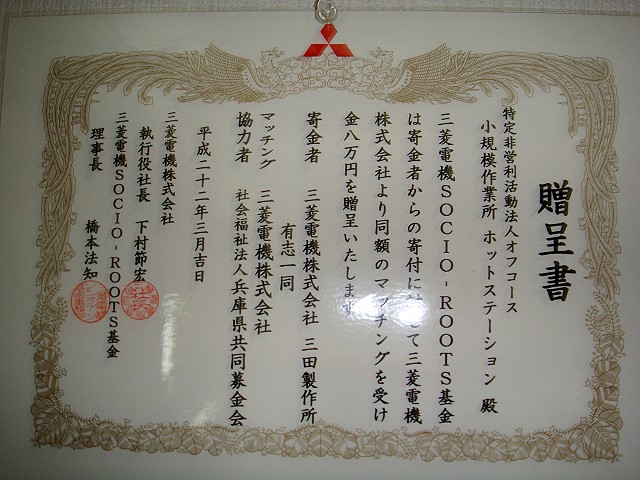 贈呈書
特定非営利活動法人オフコース
小規模作業所 ホットステーション 殿
三菱電機SOCIO-ROOTS基金
は寄金者からの寄付に対して三菱電機
株式会社より同額のマッチングを受け
金八万円を贈呈いたします
寄金者 三菱電機株式会社 三田製作所
有志一同
マッチング 三菱電機株式会社
協力者 社会福祉法人兵庫県共同募金会
平成二十二年三月吉日
三菱電機株式会社
執行役社長 下村節宏
三菱電機SOCIO-ROOTS基金
理事長 橋本法知